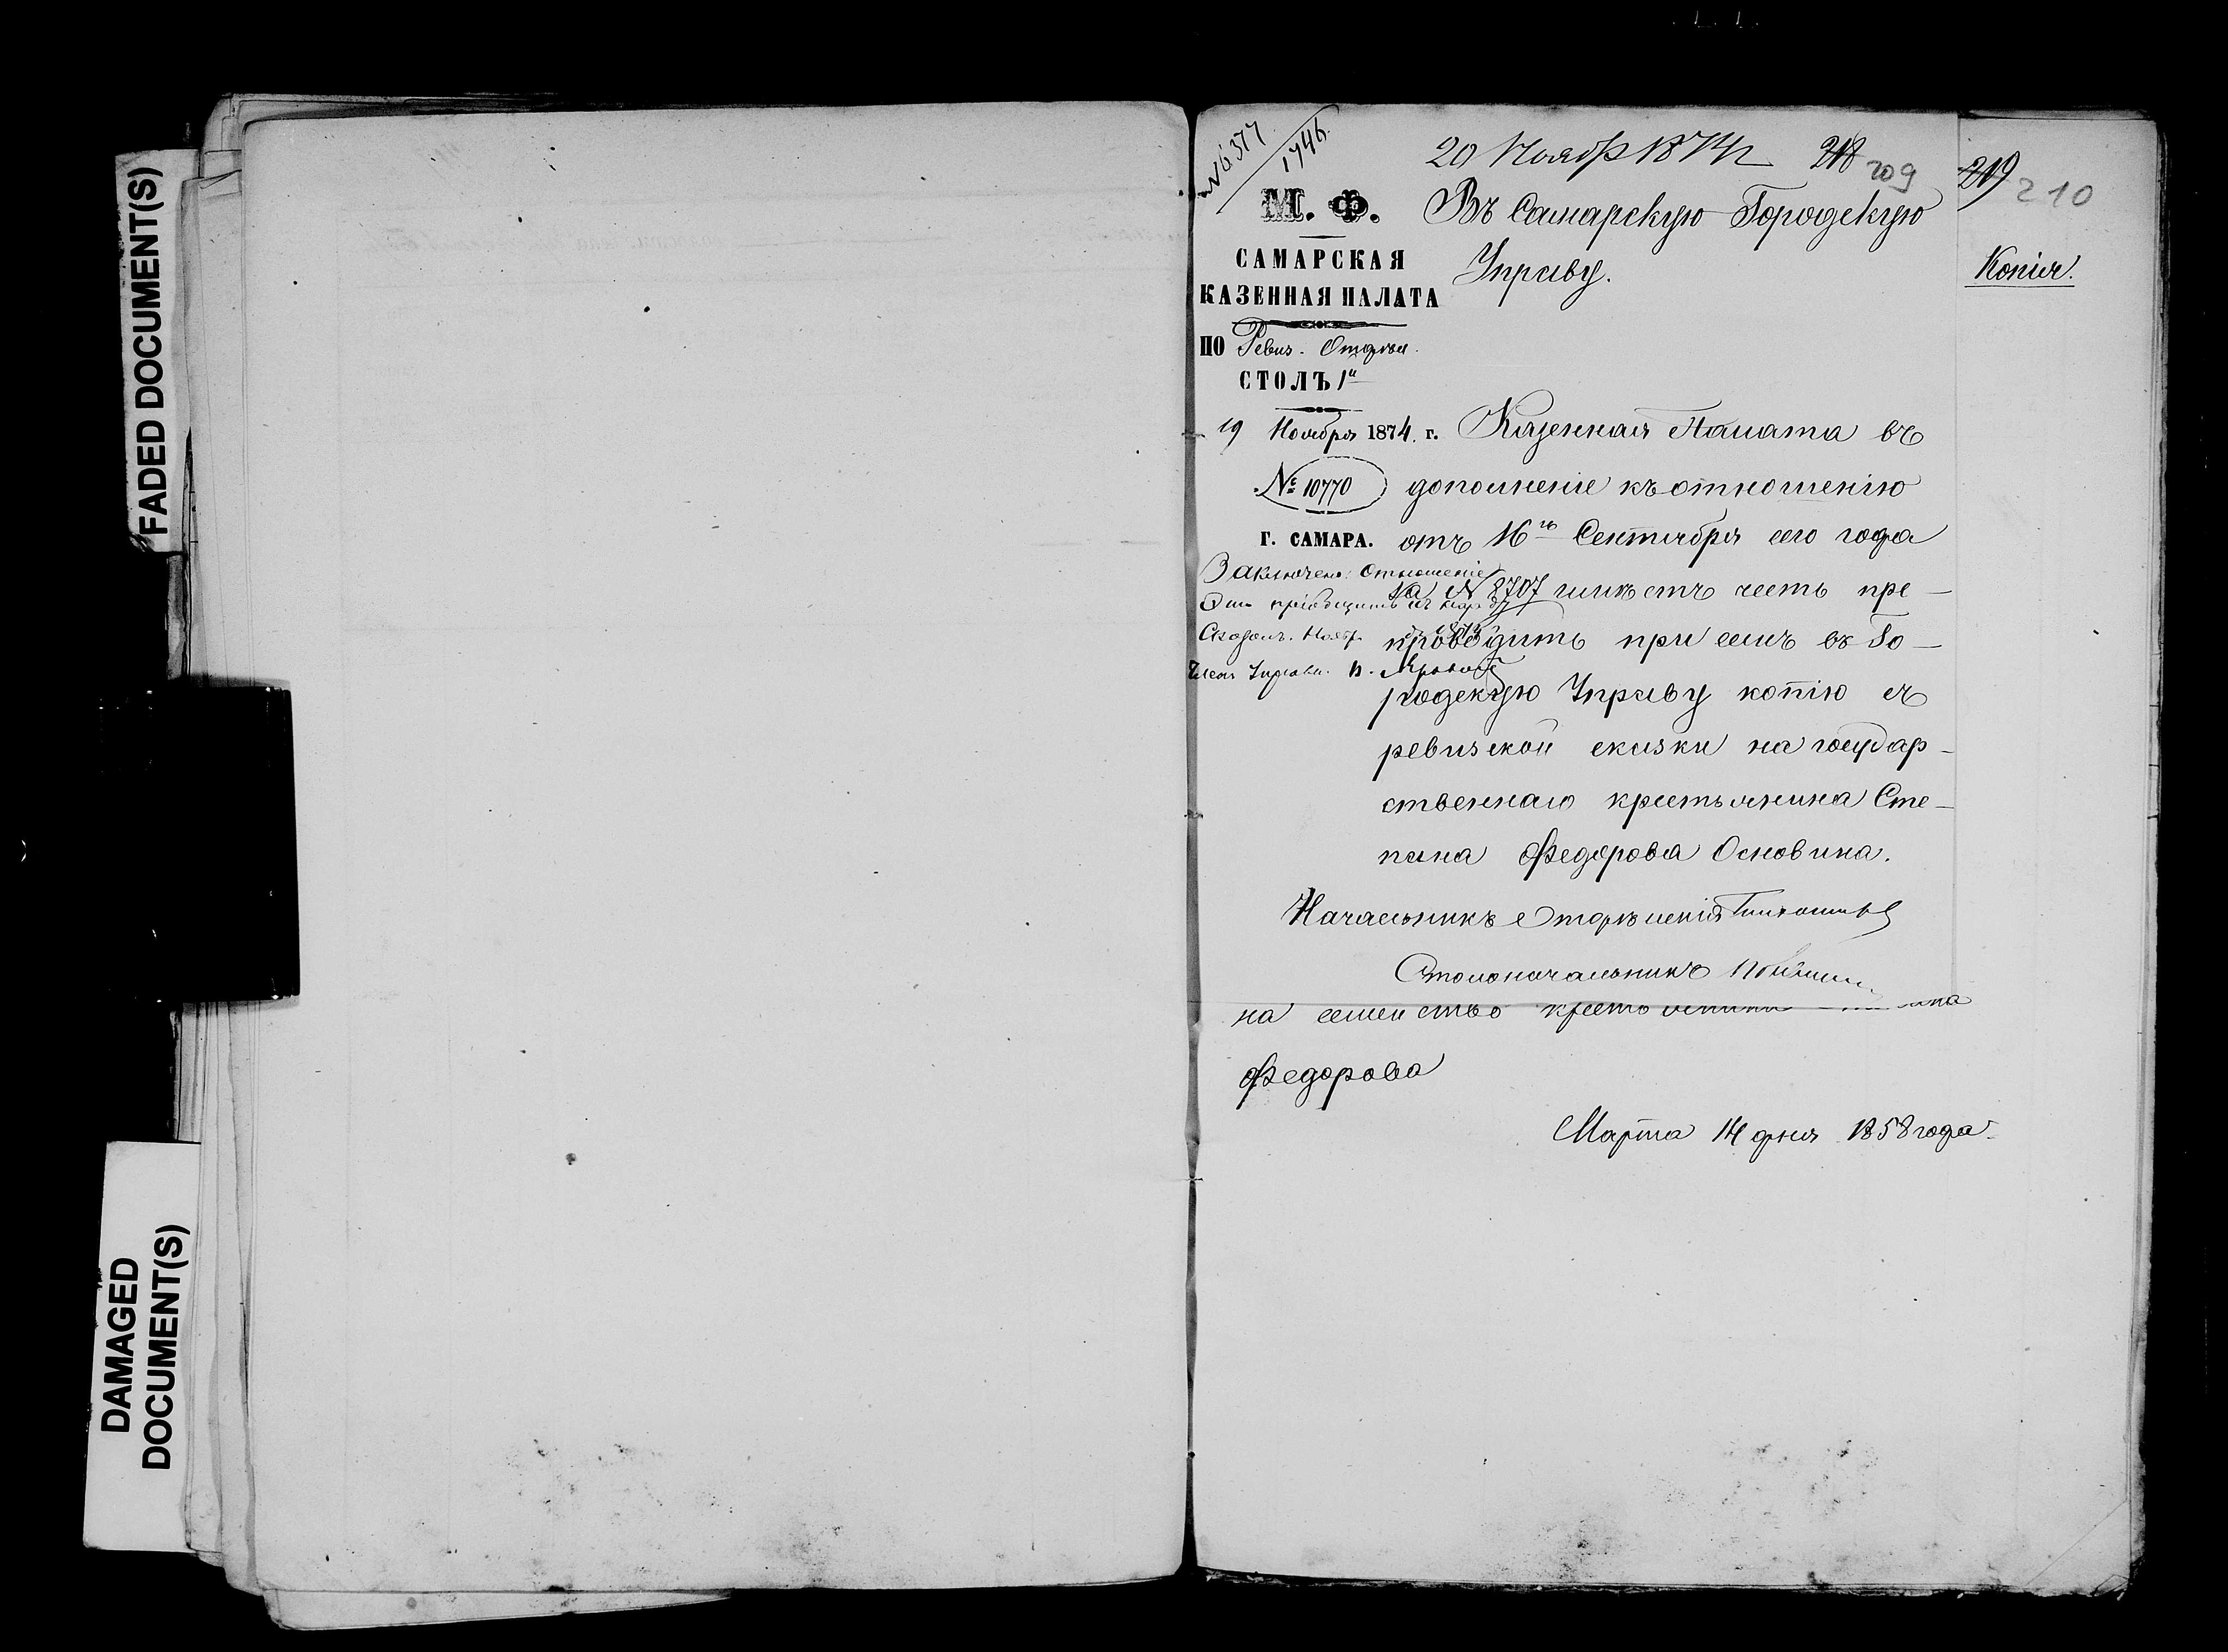 FADED DOCUMENT(S)
DAMAGED
DOCUMENT(S)
№ 6377
1746
20 Ноябр 1874 г
218 209
219 210
Копія.
М. Ф.
САМАРСКАЯ
КАЗЕННАЯ ПАЛАТА
ПО Ревиз. Отдѣл.
СТОЛЪ 1й
19 Ноября 1874. г.
№ 10770
Г. САМАРА.
Заключено: Отношеніе
Въ Самарскую Городскую
Управу.
Казенная Палата въ
дополненіе къ отношенію
отъ 16го Сентября сего года
за № 8707 имѣетъ честь пре-
проводить при семъ въ Го-
родскую Управу копію съ
ревизской сказки на государ-
ственнаго крестьянина Сте-
пана Федорова Основина.
Начальникъ Отдѣленія
Столоначальникъ
на семейство
Федорова
Марта 14 дня 1858 года.